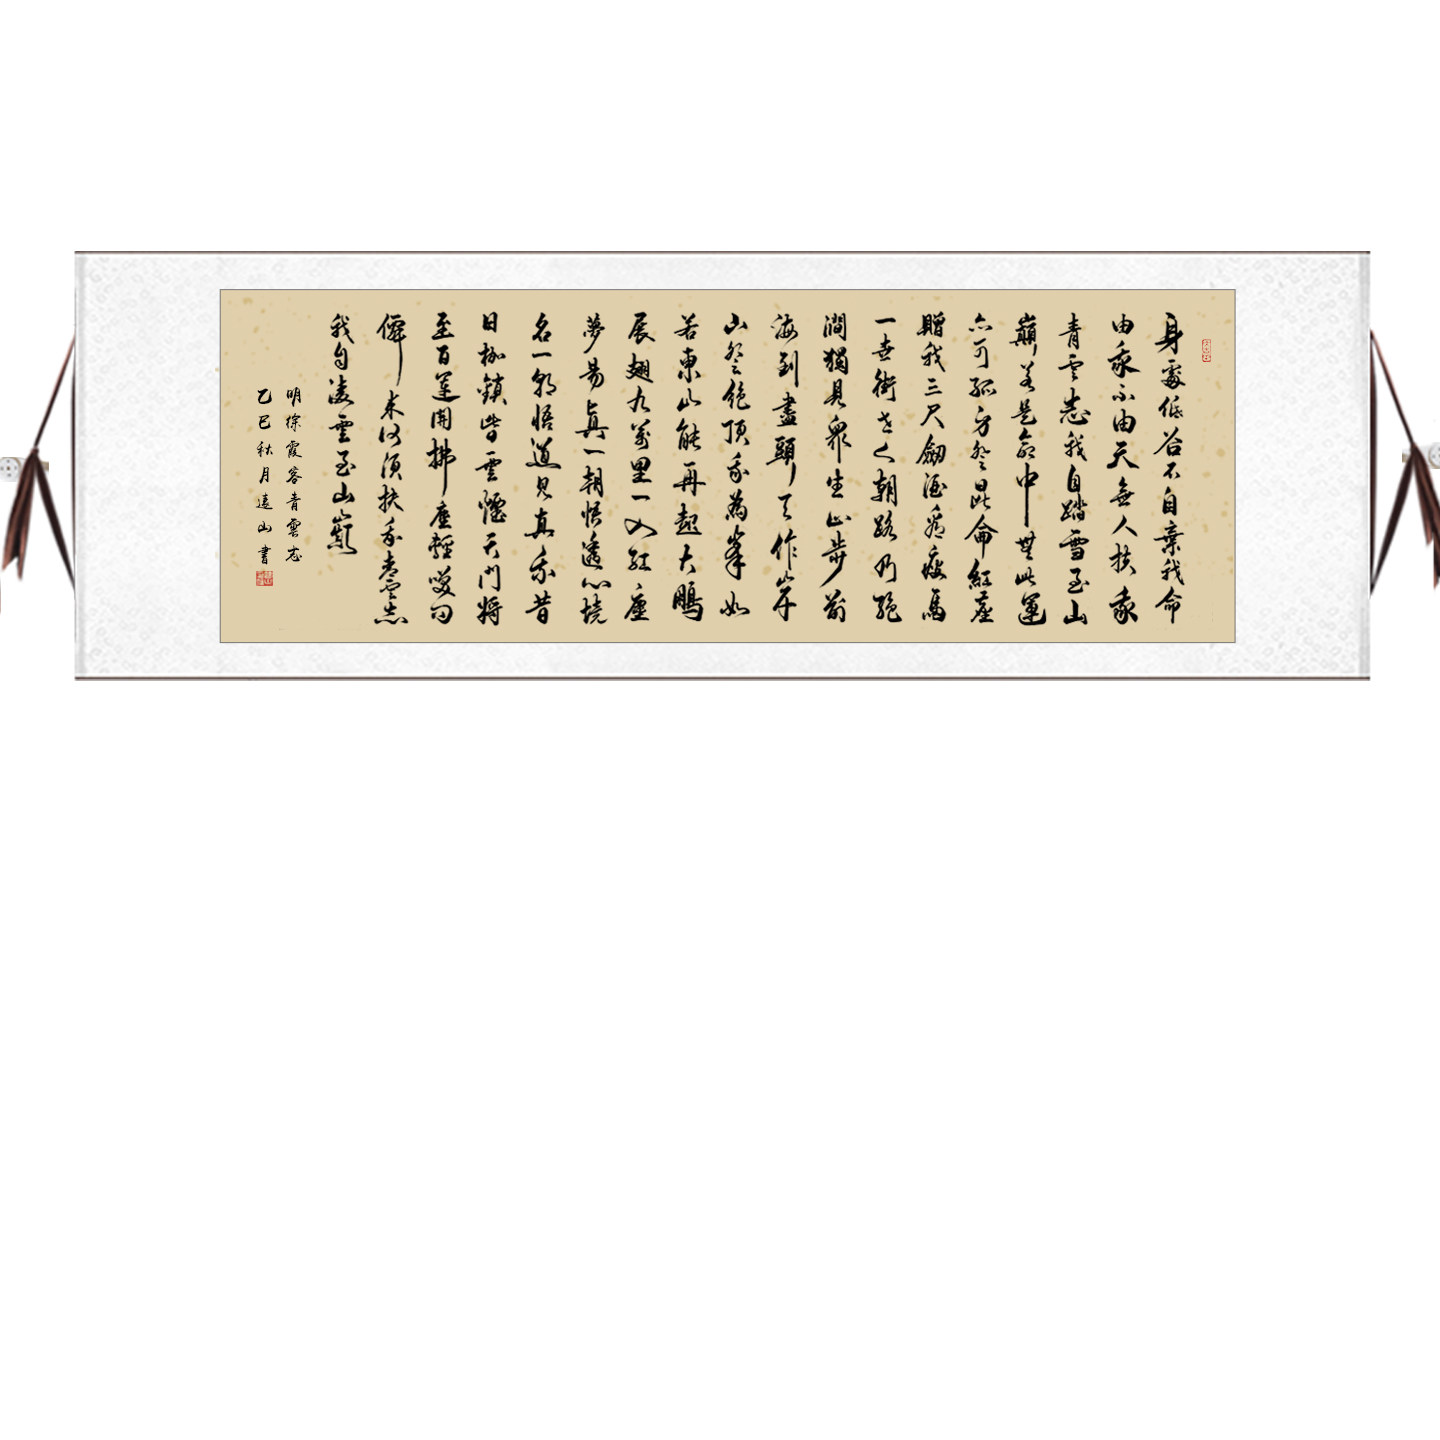 身處低谷不自棄我命
由我不由天無人扶我
青雲志我自踏雪至山
巔若是命中無此運
亦可孤身登昆侖紅塵
贈我三尺劍酒為瘦馬
一壺街老朝路乃絕
澗獨見眾生止步前
海到盡頭天作岸
山登絕頂我為峯如
若東山能再起大鵬
展翅九萬里一入紅塵
夢易真一朝悟透心境
名一朝悟道見真我昔
日枷鎖皆雲煙天門將
至百蓮開拂塵輕嘆問
僊來何須扶我青雲志
我自凌雲至山巔
明徐霞客青雲志
乙巳秋月遠山書